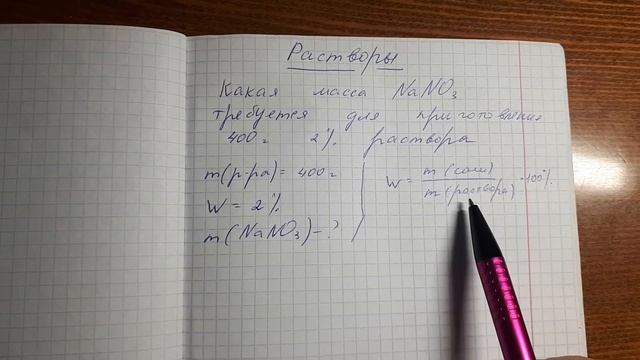 Растворы
Какая масса NaNO₃
требуется для приготовления
400 г 2% раствора
m(р-ра) = 400 г
W = 2%
m(NaNO₃) - ?
W = m(соли) / m(раствора) · 100%.